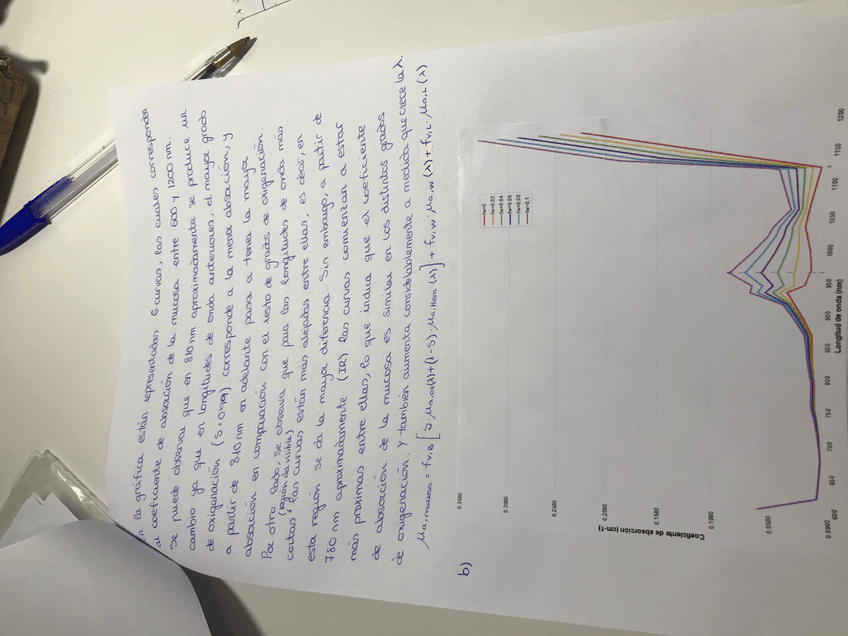 En la gráfica están representadas 6 curvas, las cuales corresponden
al coeficiente de absorción de la mucosa entre 600 y 1200 nm.
Se puede observar que en 810 nm aproximadamente se produce un
cambio ya que en longitudes de onda anteriores, el mayor grado
de oxigenación (S=0'99) corresponde a la menor absorción, y
a partir de 810 nm en adelante pasa a tener la mayor
absorción en comparación con el resto de grados de oxigenación.
Por otro lado, se observa que para las longitudes de onda más
cortas (región del visible) las curvas están más alejadas entre ellas, es decir, en
esta región se da la mayor diferencia. Sin embargo, a partir de
780 nm aproximadamente (IR) las curvas comienzan a estar
más próximas entre ellas, lo que indica que el coeficiente
de absorción de la mucosa es similar en los distintos grados
de oxigenación. Y también aumenta considerablemente a medida que crece la λ.
b)
μa,mucosa = fv,B [S·μa,oxi(λ)+(1-S)·μa,Hem(λ)] + fv,W·μa,W(λ) + fv,L·μa,L(λ)
Coeficiente de absorción (cm-1)
0.3500
0.3000
0.2500
0.2000
0.1500
0.1000
0.0500
0.0000
fw=0
fw=0.02
fw=0.04
fw=0.06
fw=0.08
fw=0.1
600 650 700 750 800 850 900 950 1000 1050 1100 1150 1200
Longitud de onda (nm)